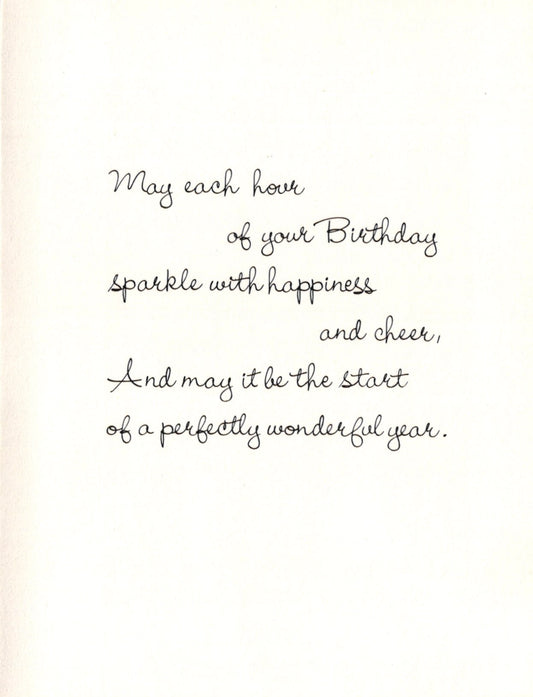 May each hour
of your Birthday
sparkle with happiness
and cheer,
And may it be the start
of a perfectly wonderful year.